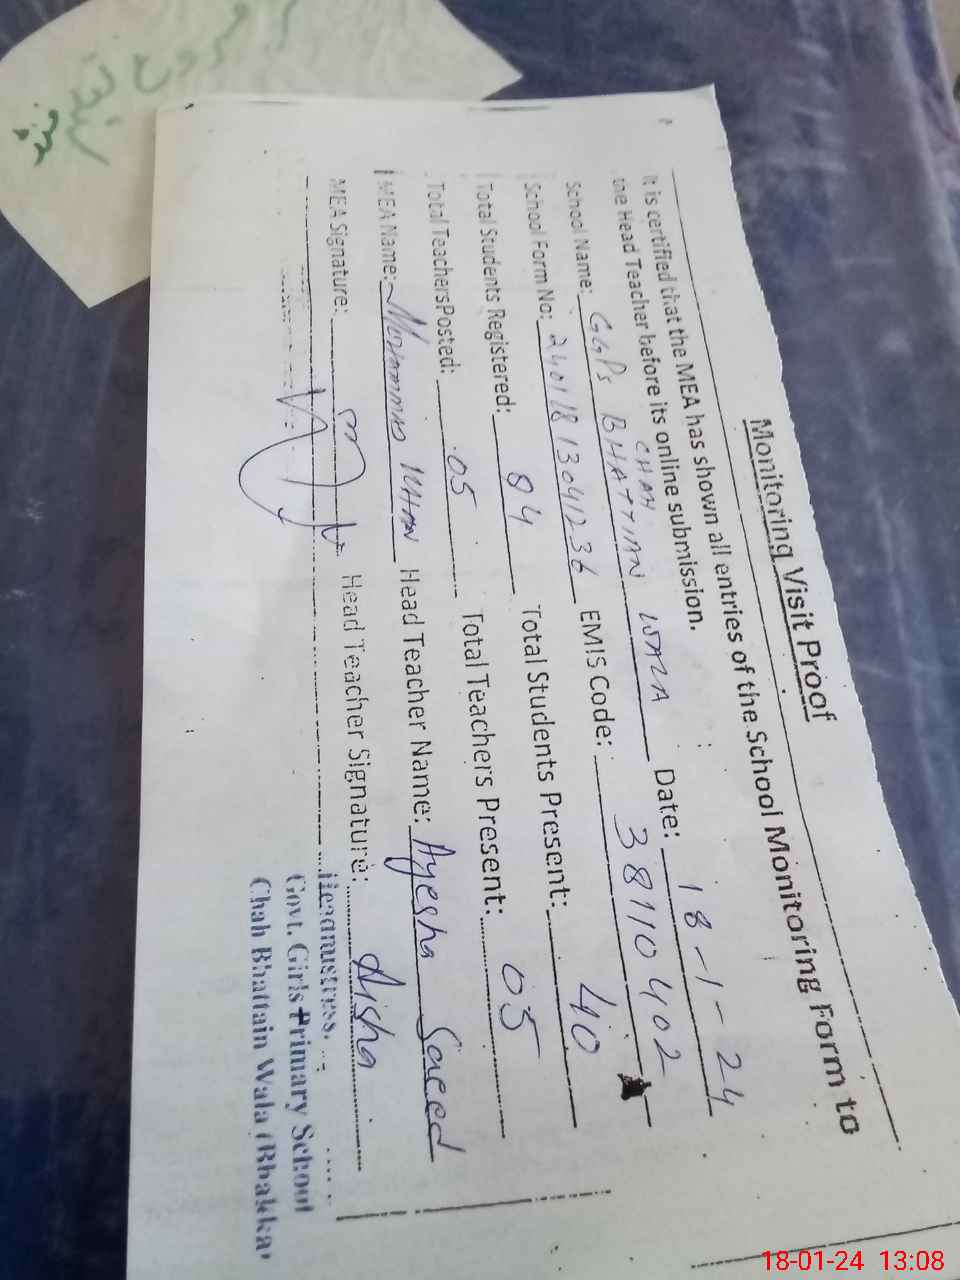 Monitoring Visit Proof
It is certified that the MEA has shown all entries of the School Monitoring Form to
the Head Teacher before its online submission.
School Name: GGPS BHATTIAN CHAH WALA Date: 18-1-24
School Form No: 24011813041236 EMIS Code: 38110402
Total Students Registered: 84 Total Students Present: 40
Total Teachers Posted: 05 Total Teachers Present: 05
MEA Name: KHAN Head Teacher Name: Ayesha Saeed
MEA Signature: Head Teacher Signature: Aisha
Headmistress.
Govt. Girls Primary School
Chah Bhattain Wala (Bhakkar
18-01-24 13:08